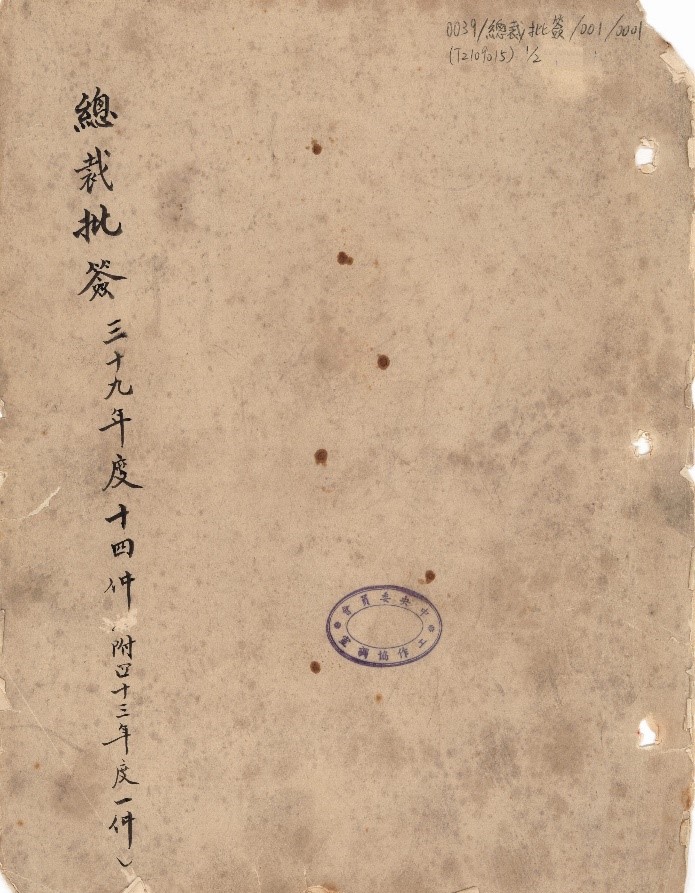 0039/總裁批簽/001/0001
(T2109015) 1/2
總裁批簽 三十九年度十四件(附四十三年度一件)
中央委員會
工作協調室